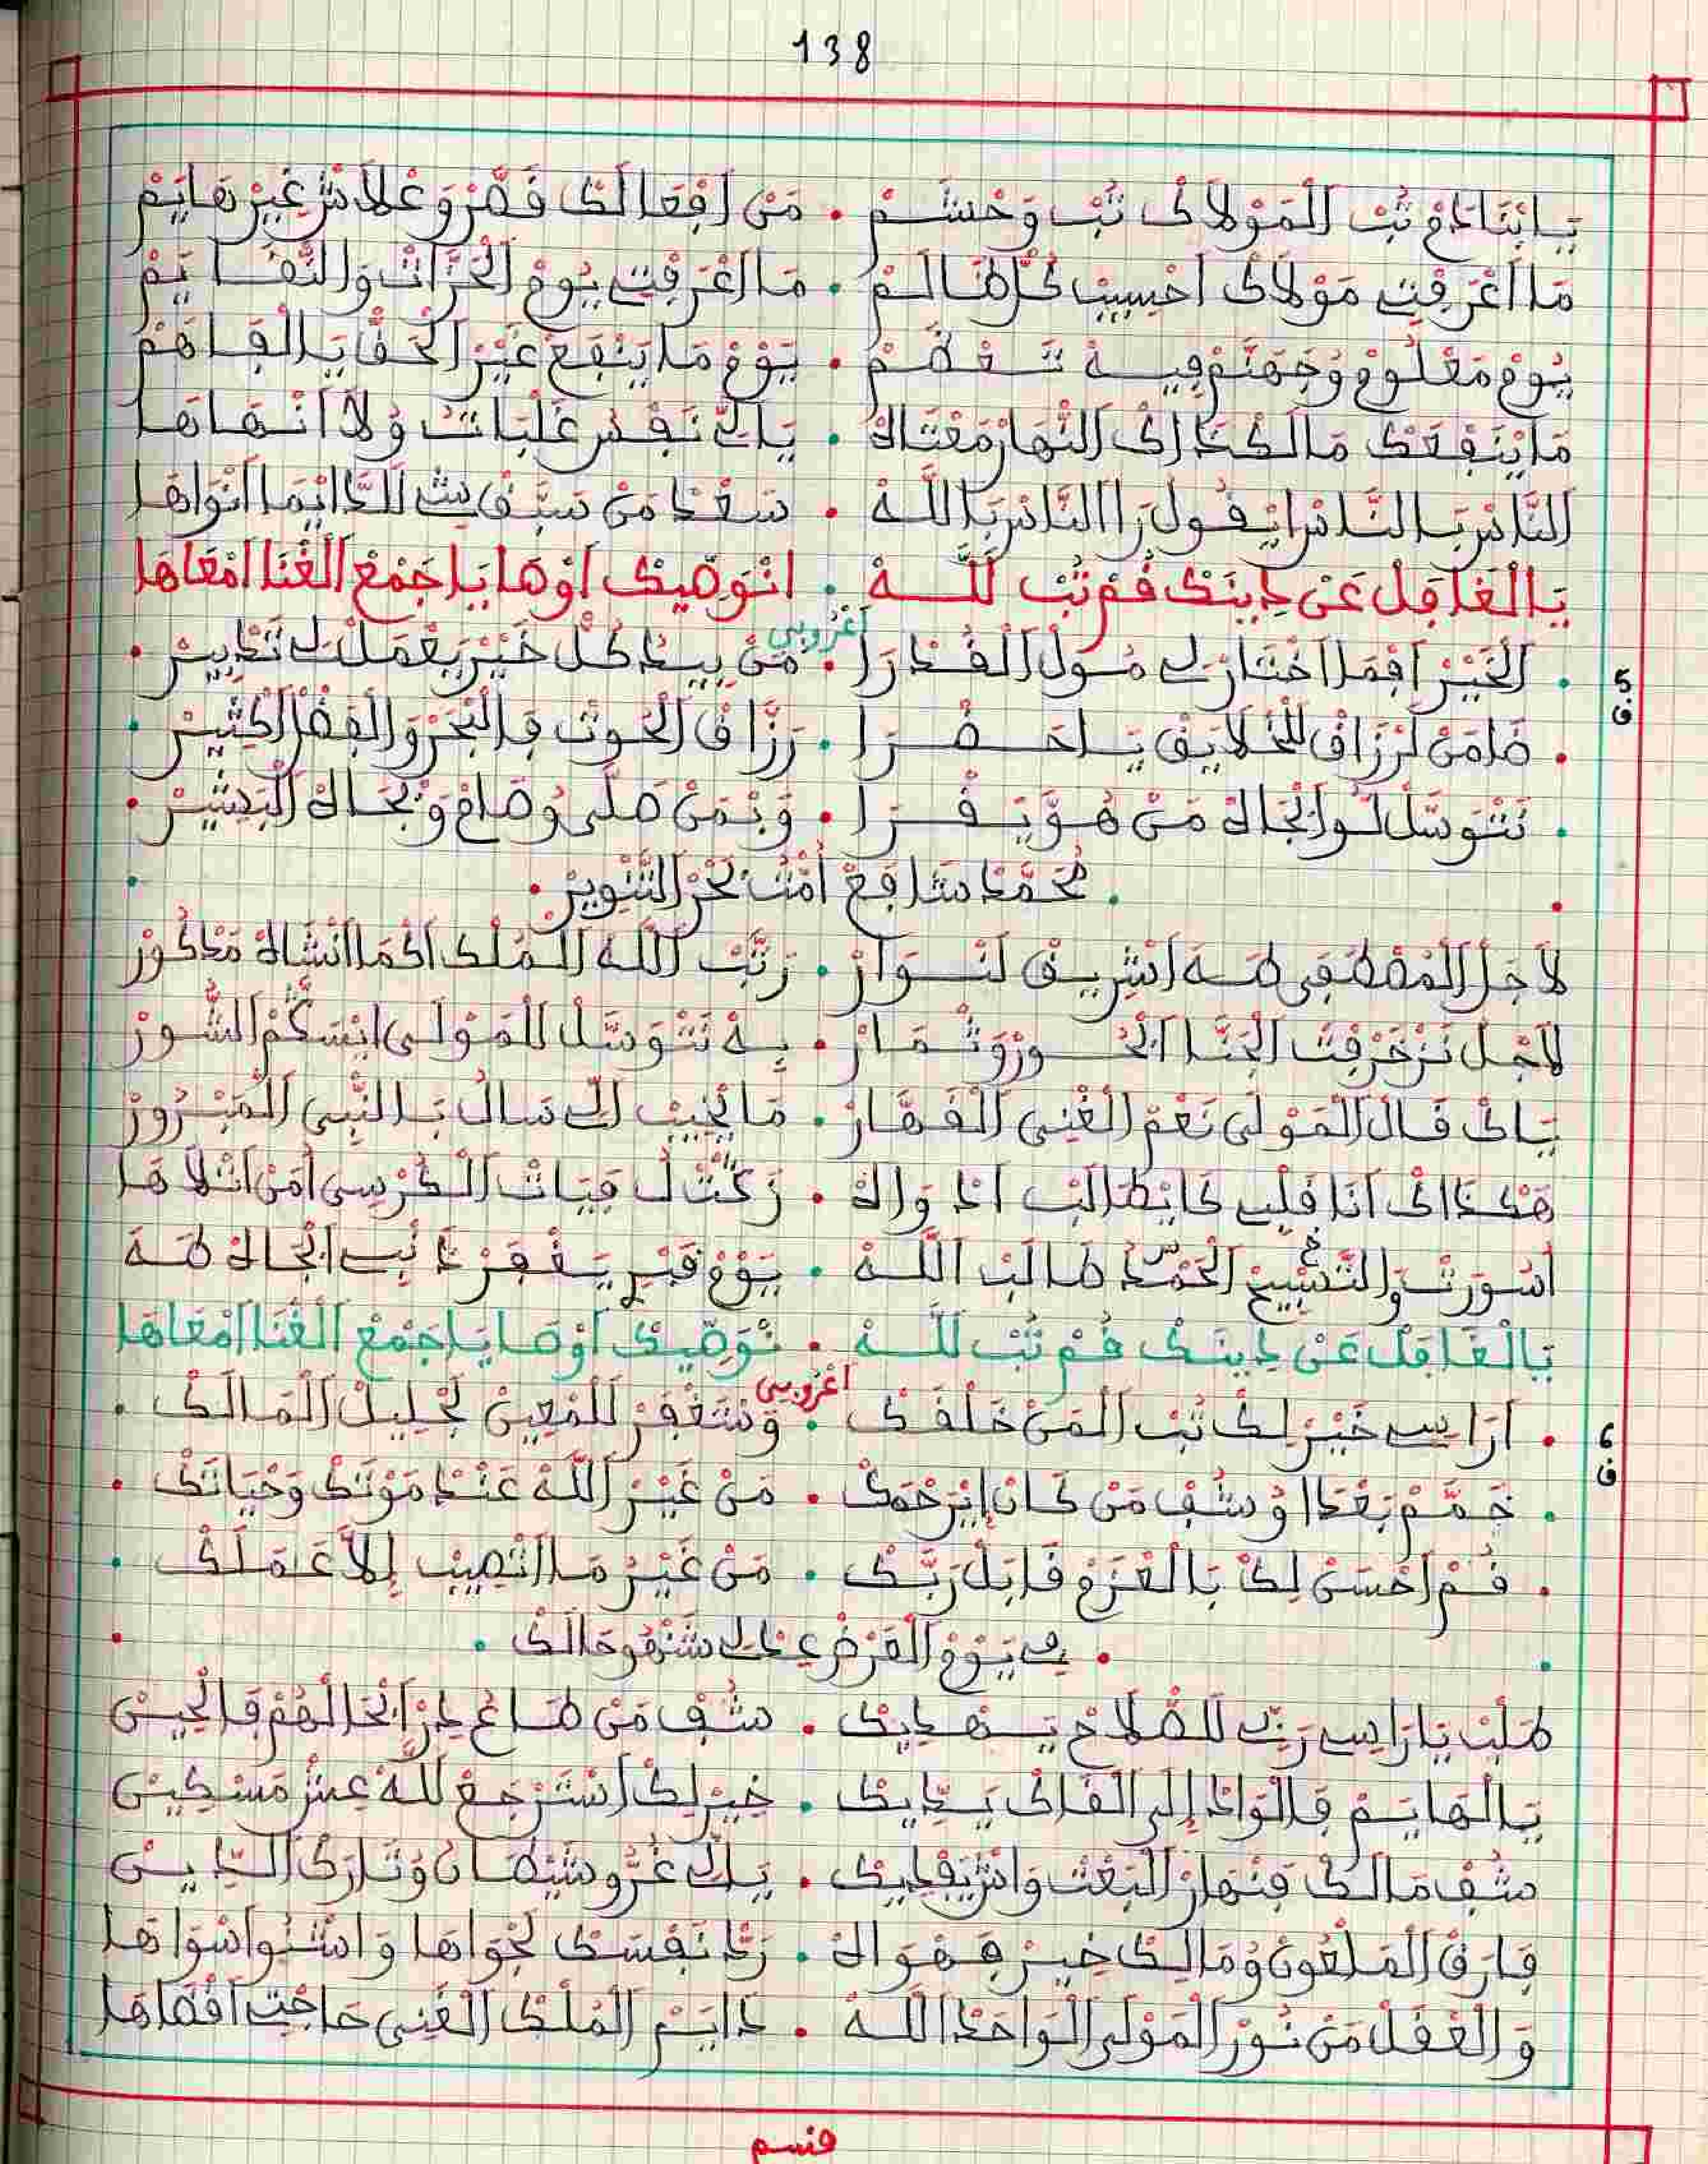 138
يَا ابْنَادَمْ تُبْ الْمَوْلَاكْ تُبْ وَحْشَمْ • مَنْ افْعَالَكْ قَصَّرْ وَعْلَاشْ غَيْرْ هَايَمْ
مَا اعْرَفْتِ مَوْلَاكْ احْسِيبْ كُلْ ظَالَمْ • مَا اعْرَفْتِ يُومْ الْحَرَّاتْ وَالنَّقَايَمْ
يُومْ مَعْلُومْ وُجَهَنَّمْ فِيهْ تَعْظَمْ • يَوْمْ مَا يَنْفَعْ غَيْرْ الْحَقْ يَا الْفَاهَمْ
مَا يَنْفِعَكْ مَالَكْ دَاكْ النَّهَارْ مَعْتَاهْ • يَاكْ نَفْسْ غَلْبَاتْ وُلَا انْهَاهَا
النَّاسْ بَالنَّاسْ ايْقُولْ رَا النَّاسْ بَاللَّهْ • سَعْدْ مَنْ سَبَّقْ شِ للدَّايْمَا انْوَاهَا
يَا الْغَافِلْ عَنْ دِينَكْ قُمْ تُبْ لَلَّهْ • انْوَصِّيكْ اوْهَا يَا جَمْعْ الْغْنَا امْعَاهَا
اعْرُوبِي
ف5
• الْخَيْرْ افْمَا اخْتَارْ لِ مُولْ الْقُدْرَا • مَنْ بِيدْ كُلْ خَيْرْ يَعْمَلْ لِ تَدْبِيرْ •
• ضَامَنْ لَرْزَاقْ للْخْلَايَقْ يَا حَضْرَا • رَزَّاقْ الْحُوتْ فِالْبْحَرْ وَالْقِفْرْ الْكْثِيرْ •
• نَتْوَسَّلْ لُو ابْجَاهْ مَنْ هُوَّ يَقْرَا • وَبْمَنْ صَلَّى وُصَامْ وَبْجَاهْ الْبَشِيرْ •
• مُحَمَّدْ شَافَعْ امْتُ بَحْرْ التَّنْوِيرْ •
لَاجَلْ الْمُصْطَفِى طَهَ اشْرِيفْ لَنْوَارْ • رَتَّبْ اللَّهْ الْمُلْكْ اكْمَا انْشَاهْ مَدْكُورْ
لَاجْلْ تَزْخَرْفَتْ الْجَنَّا ابْحُورْ وَثْمَارْ • بِهْ نَتْوَسَّلْ الْمَوْلَى ايْسَكَّمْ الشُّورْ
يَاكْ قَالْ الْمَوْلَى نَعْمْ الْغْنِي الْقَهَّارْ • مَا يْخِيبْ الِّ سَالْ بَالنَّبِي الْمَبْرُورْ
هَكْدَاكْ انَا قَلْبِ كَا يْطَالَبْ ادْوَاهْ • زَكْتْ لُ فِيَاتْ الْكُرْسِي امْنْ اتْلَاهَا
اسُورْتْ وَالتَّسْبِيحْ الْحَمْدْ طَالَبْ اللَّهْ • يَوْمْ قَبْرِ يَغْفَرْ دَنْبِ ابْجَاهْ طَهَ
يَا الْغَافِلْ عَنْ دِينَكْ قُمْ تُبْ لَلَّهْ • نْوَصِّيكْ اوْصَايَا جَمْعْ الْغْنَا امْعَاهَا
اعْرُوبِي
ف6
• ارَاسِي خَيْرْ لِكْ تُبْ الْمَنْ خَلْقَكْ • وَسْتَغْفِرْ للْمْعِينْ لَجْلِيلْ الْمَالَكْ •
• خَمَّمْ بَعْدَا وُشُفْ مَنْ كَانْ ايْرَحْمَكْ • مَنْ غَيْرْ اللَّهْ عَنْدْ مَوْتَكْ وَحْيَاتَكْ •
• قُمْ احْسَنْ لِكْ بَالْعْزَمْ قَابَلْ رَبَّكْ • مَنْ غَيْرُ مَا اتْصِيبْ إِلَّا عَمَلَكْ •
• فِي يَوْمْ الْعَرْضْ عِدْ لِ شَنْهُو حَالَكْ •
طَلْبْ يَا رَاسِي رَبِّ للصْلَاحْ يَهْدِيكْ • شُفْ مَنْ طَاعْ دِرْ ابْحَالْهُمْ فَالْحِينْ
يَا الْهَايَمْ فَالْوَادْ إِلَى الْقَاكْ يَدِّيكْ • خِيرْ لِكْ اسْتَرْجَعْ للَّهْ عِشْ مَسْكِينْ
شُفْ مَالَكْ فَنْهَارْ الْبَعْتْ وَاشْ يَفْدِيكْ • يَاكْ غُرُّو شَيْطَانْ وُتَارَكْ الدِّينْ
فَارَقْ الْمَلْعُونْ وُمَالِكْ خِيرْ فِهْوَاهْ • رَدْ نَفْسَكْ لَجْوَاهَا وَاشْنُو اسْوَاهَا
وَالْعْقَلْ مَنْ نُورْ الْمَوْلَى الْوَاحَدْ اللَّهْ • دَايَمْ الْمُلْكْ الْغْنِي حَاجْتِ اقْضَاهَا
قسم